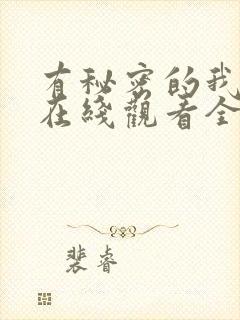 有秘密的我们
在綫觀看全
裴睿